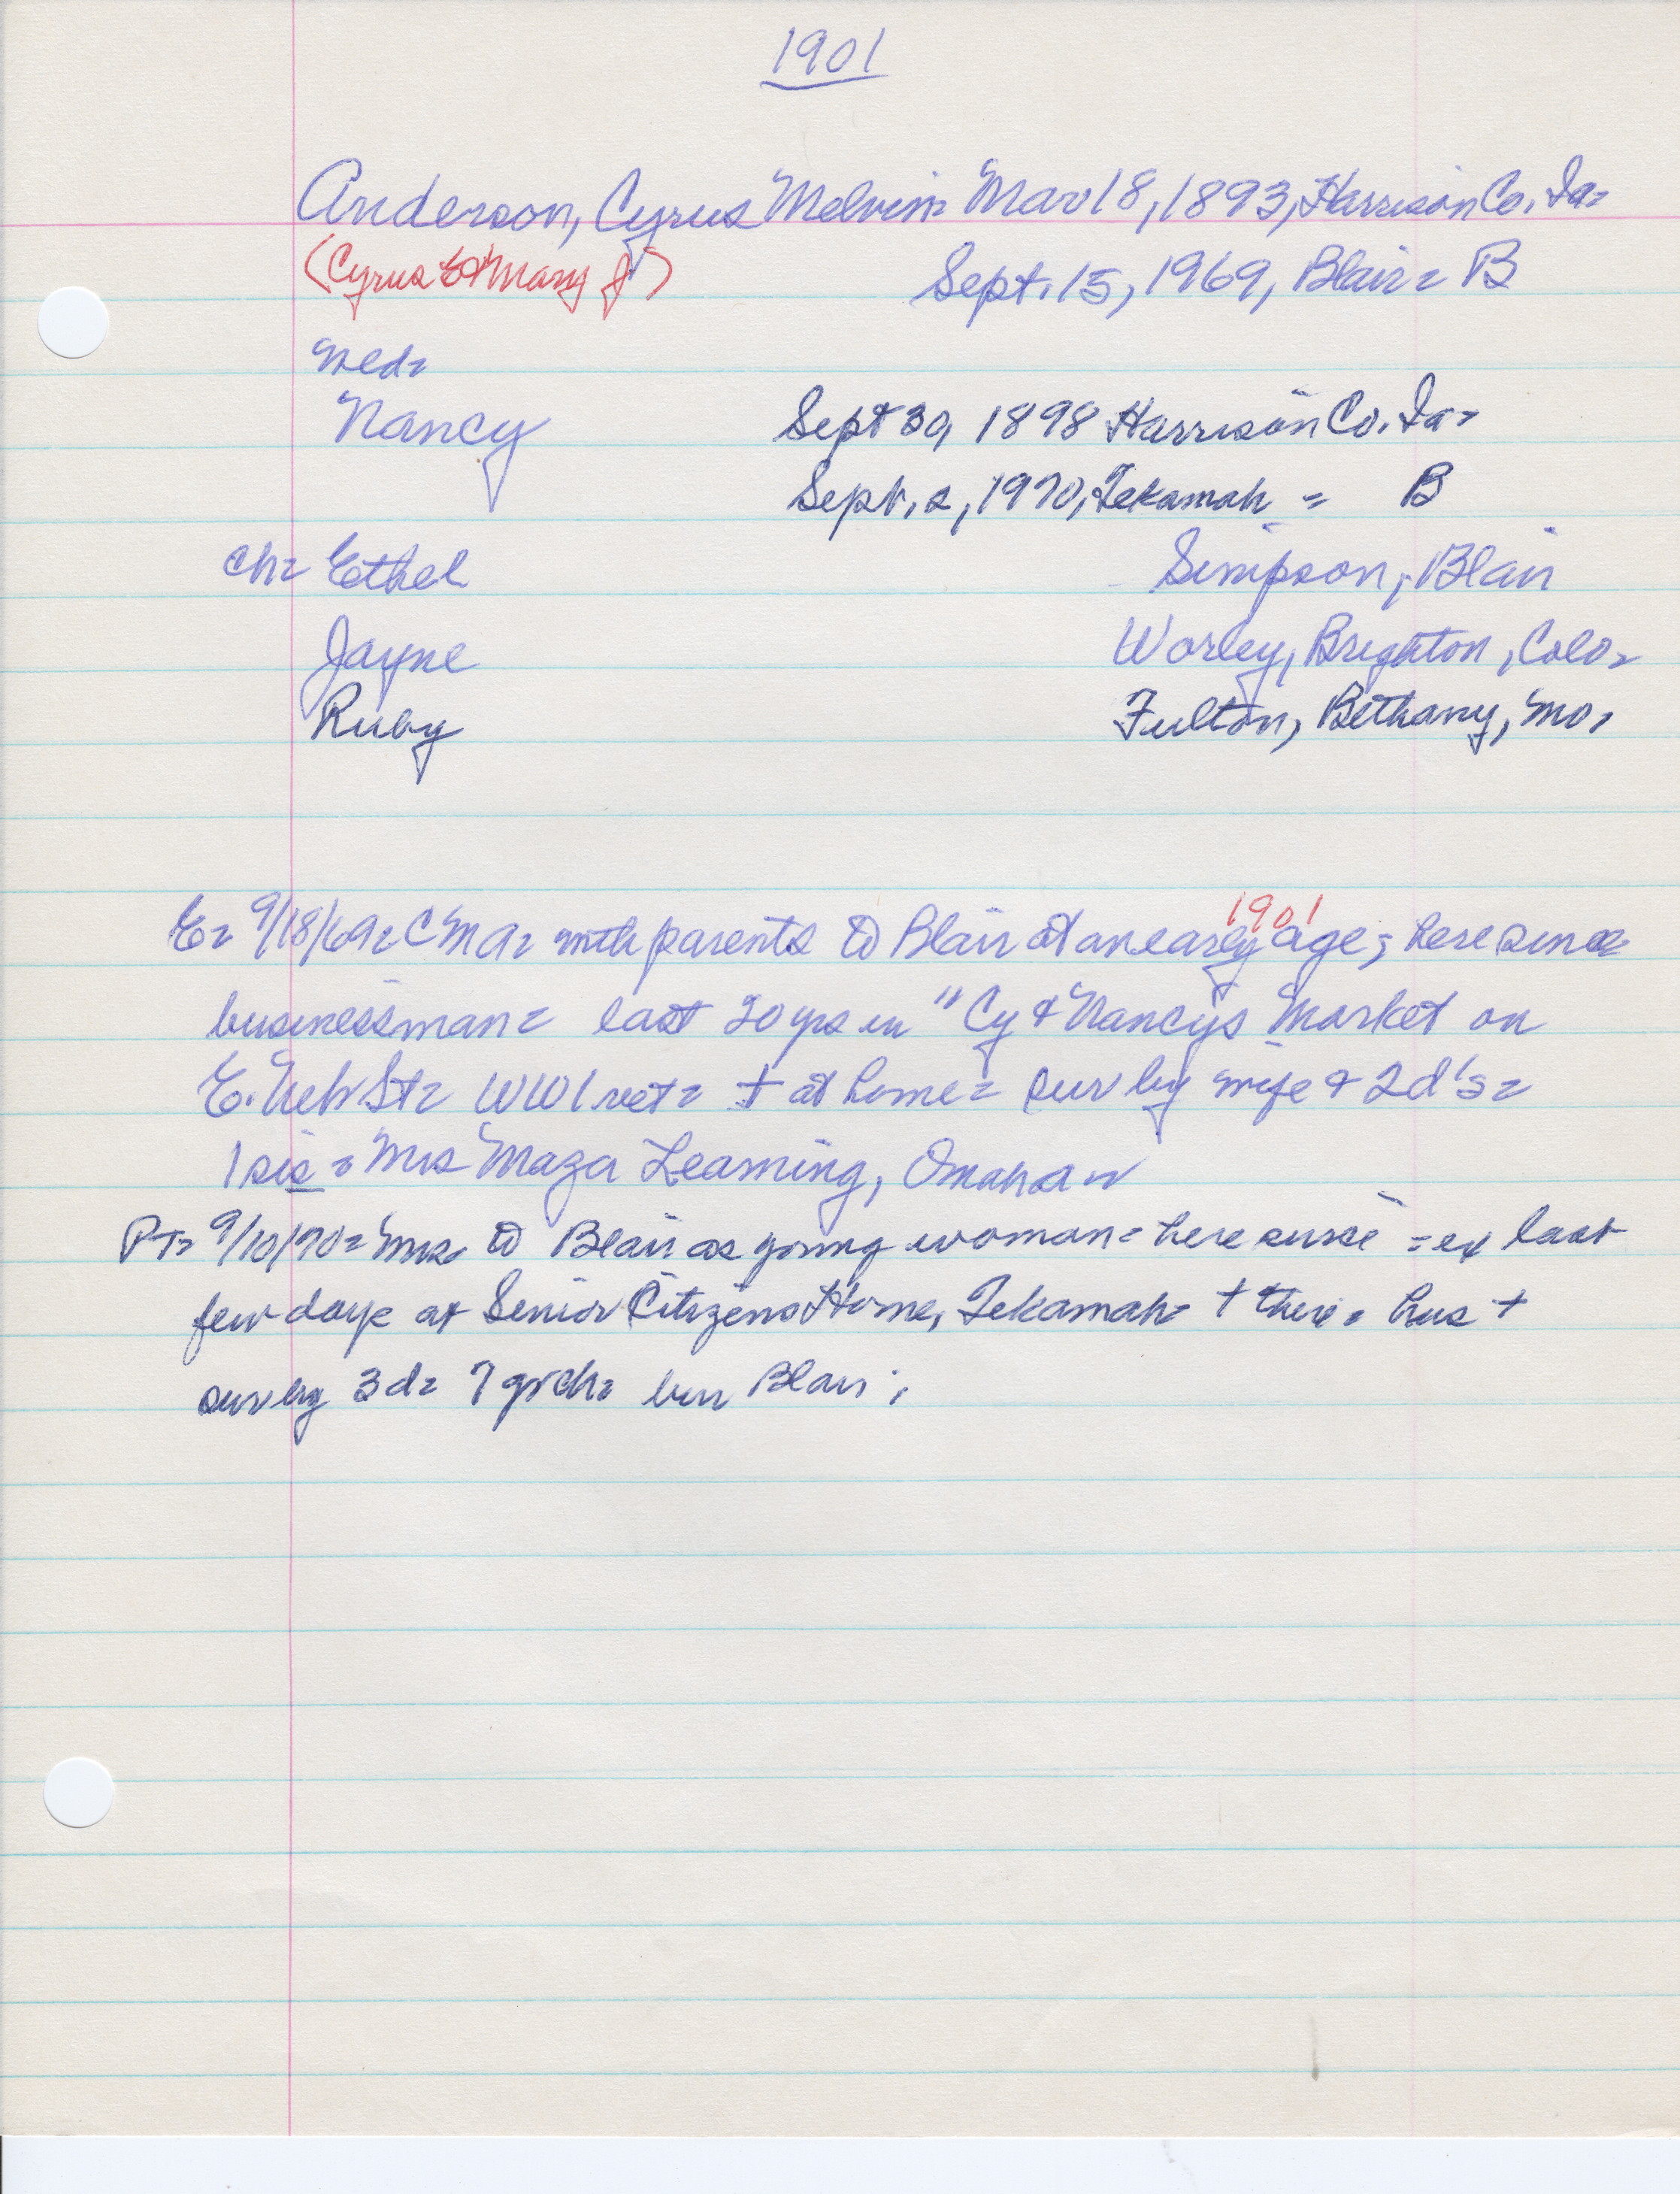 1901
Anderson, Cyrus Melvin= Mar 18, 1893, Harrison Co. Ia=
(Cyrus E & Mary J)
Sept. 15, 1969, Blair= B
wed=
Nancy Sept 30, 1898 Harrison Co. Ia=
Sept. 2, 1970, Tekamah = B
ch= Ethel Simpson, Blair
Jayne Worley, Brighton, Colo=
Ruby Fulton, Bethany, Mo.
1901
E= 9/18/69= CMA= with parents to Blair at an early age; here since
businessman= last 20 yrs in "Cy & Nancys Market on
E. Neb St= WW1 vet= † at home= surv by wife & 2 d's=
1 sis = Mrs Maza Leaming, Omaha
PT= 9/10/70= Mrs. to Blair as young woman= here since =ex last
few days at Senior Citizens Home, Tekamah= † there= hus †
surv by 3 d= 7 grch= bur Blair;